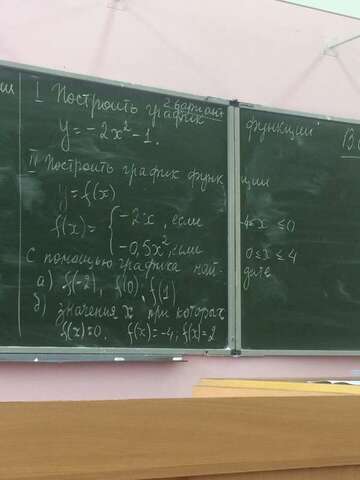 2 вариант
I Построить график функции
y = -2x² - 1.
II Построить график функции
y = f(x)
f(x) = { -2x, если -4≤x ≤0
-0,5x², если 0≤x≤4
С помощью графика найдите
а) f(-2), f(0), f(1)
б) значения x при которых
f(x)=0, f(x)=-4, f(x)=2